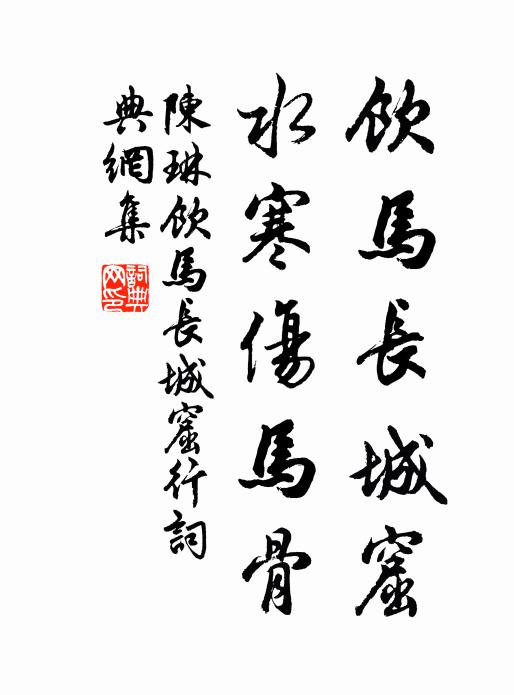 飲馬長城窟
水寒傷馬骨
陳琳飲馬長城窟行詞
典網集
詞典網印